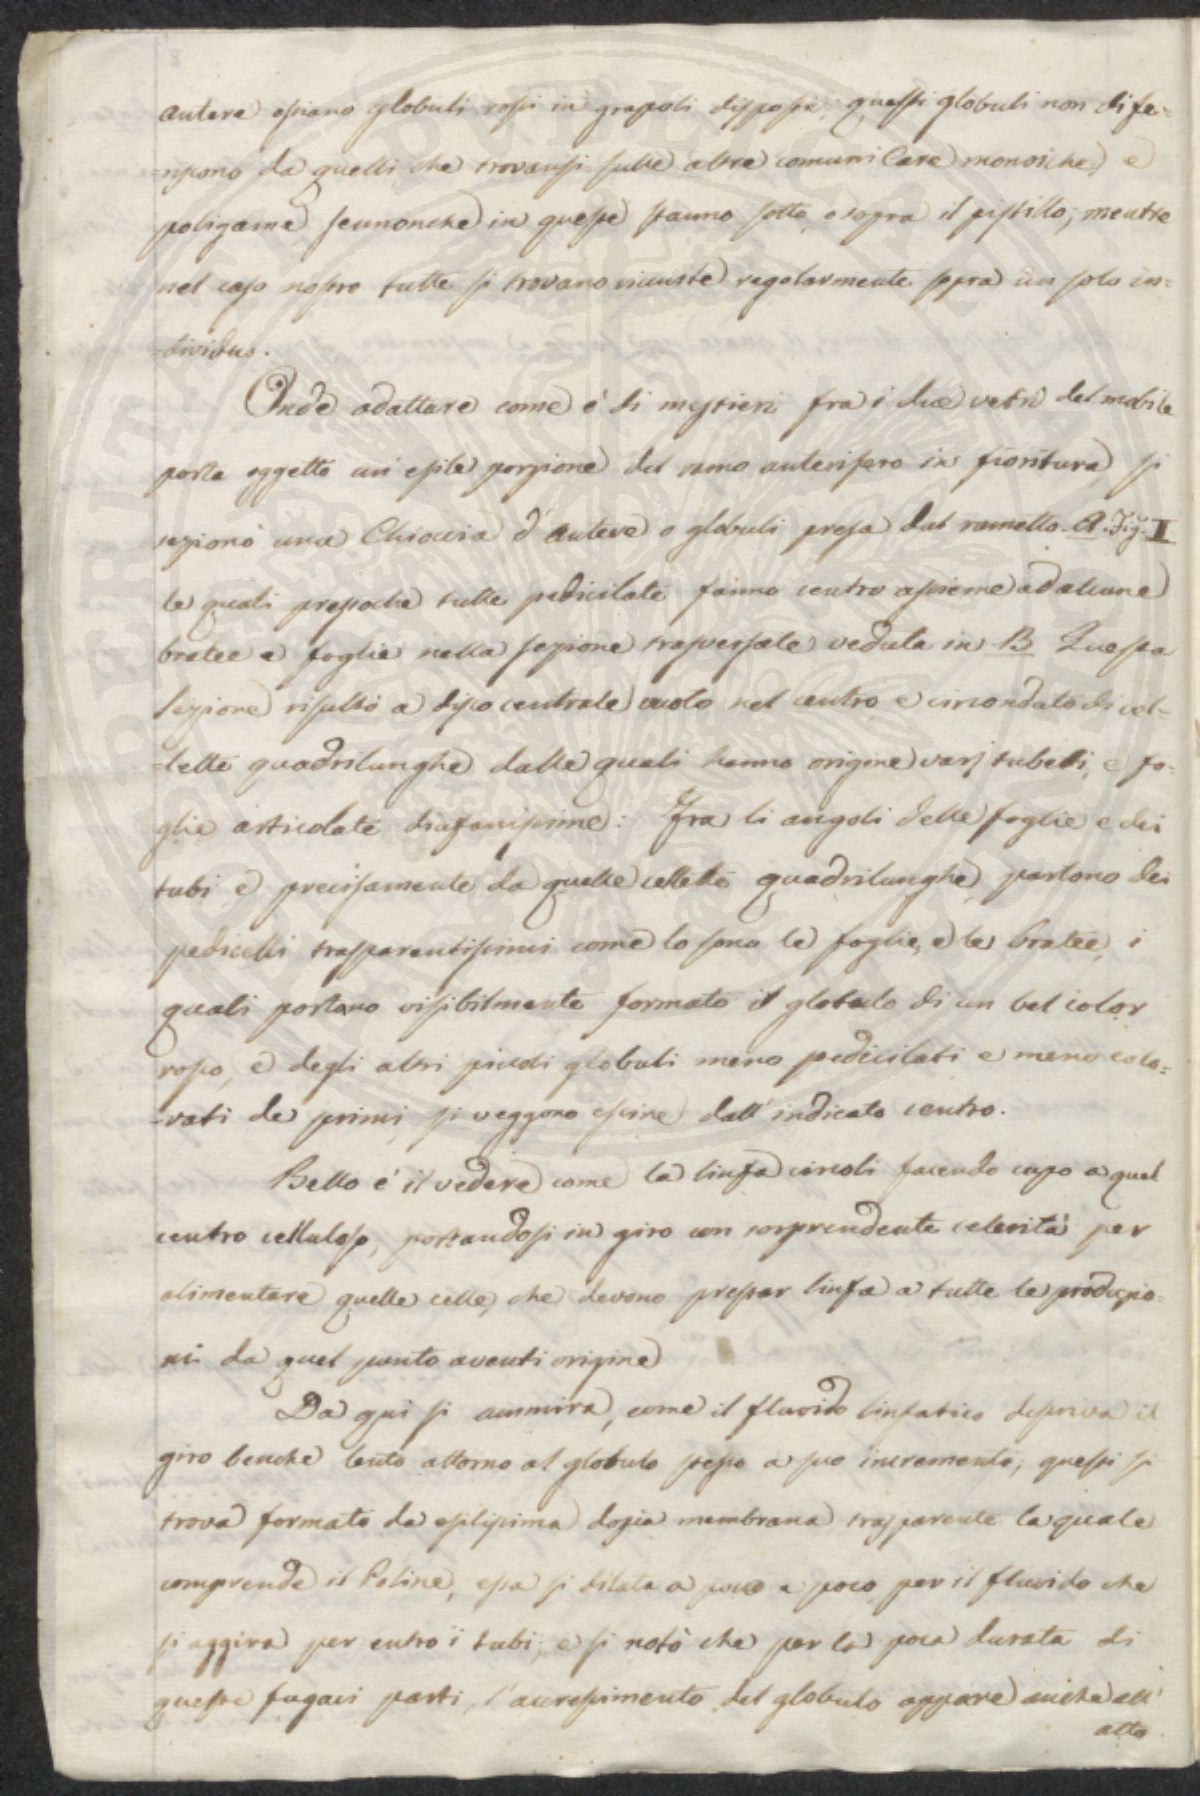 antere ossiano globuli rossi in grapoli disposti; questi globuli non dife-
-riscono da quelli che trovansi sulle altre comuni Care monoiche, e
poligame, senonche in queste stanno sotto, o sopra il pistillo, mentre
nel caso nostro tutte si trovano riunite regolarmente sopra un solo in-
-dividuo.
Onde adattare come è di mestieri fra i due vetri del mobile
porta oggetto un' esile porzione del ramo anterifero in fioritura, si
sezionò una Chioccia d'Antere o globuli presa dal rametto A. Fig. I
le quali pressoche tutte pedicilate fanno centro assieme ad alcune
bratee e foglie nella sezione trasversale veduta in B Questa
sezione risultò a disco centrale vuoto nel centro e circondato di cel-
-lette quadrilunghe dalle quali hanno origine varj tubetti, e fo-
glie articolate diafanissime: Fra li angoli delle foglie e dei
tubi e precisamente da quelle cellette quadrilunghe, partono dei
pedicelli trasparentissimi come lo sono le foglie, e le bratee, i
quali portano visibilmente formato il globulo di un bel color
rosso, e degli altri picoli globuli meno pedicilati e meno colo-
-rati de primi, si veggono escire dall' indicato centro.
Bello è il vedere come la linfa circoli facendo capo a quel
centro celluloso, portandosi in giro con sorprendente celerità per
alimentare quelle celle, che devono prestar linfa a tutte le produzio-
ni da quel punto aventi origine
Da qui si ammira, come il fluvido linfatico descriva il
giro benche lento attorno al globulo stesso a suo incremento; questi si
trova formato da esilissima dopia membrana trasparente la quale
comprende il Poline, essa si dilata a poco a poco per il fluvido che
si aggira per entro i tubi, e si notò che per la poca durata di
queste fugaci parti, l'acrescimento del globulo appare anche all'
atto